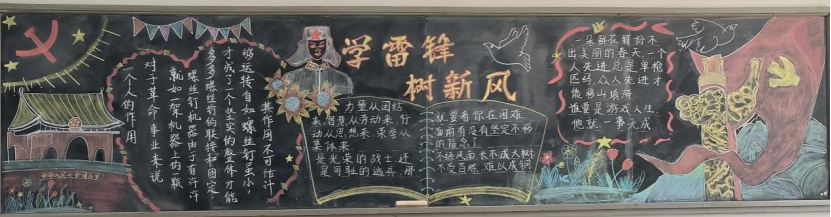 一个人的作用
对于革命事业来说
就如一架机器上的一颗
螺丝钉机器由于有许许
多多螺丝钉的联接和固定
才成了一个坚实的整体才能
够运转自如螺丝钉虽小
其作用不可估计
学雷锋
树新风
力量从团结
来,智慧从劳动来,行
动从思想来,荣誉从
集体来
是光荣的战士,还
是可耻的逃兵,那
就要看你在困难
面前有没有坚定不移
的信念了
不经风雨,长不成大树
不受百炼,难以成钢
一朵鲜花打扮不
出美丽的春天,一个
人先进总是单枪
匹马,众人先进才
能移山填海
谁要是游戏人生,
他就一事无成